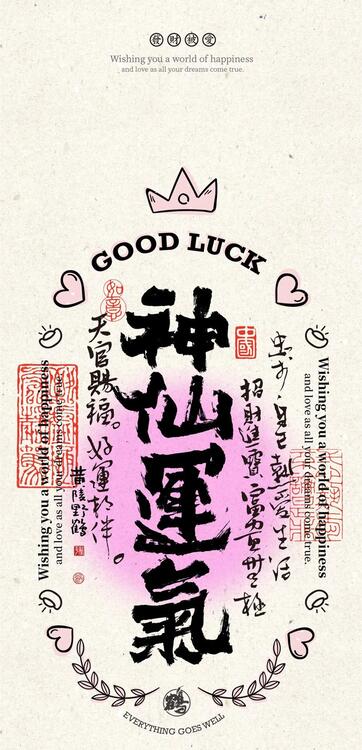 發財被愛
Wishing you a world of happiness
and love as all your dreams come true.
GOOD LUCK
神仙運氣
中國
忠於自己熱愛生活
招財進寶富貴無極
如意
天官賜福。好運相伴。
黄陵野鶴
Wishing you a world of happiness
and love as all your dreams come true.
Wishing you a world of happiness
and love as all your dreams come true.
鶴
EVERYTHING GOES WELL